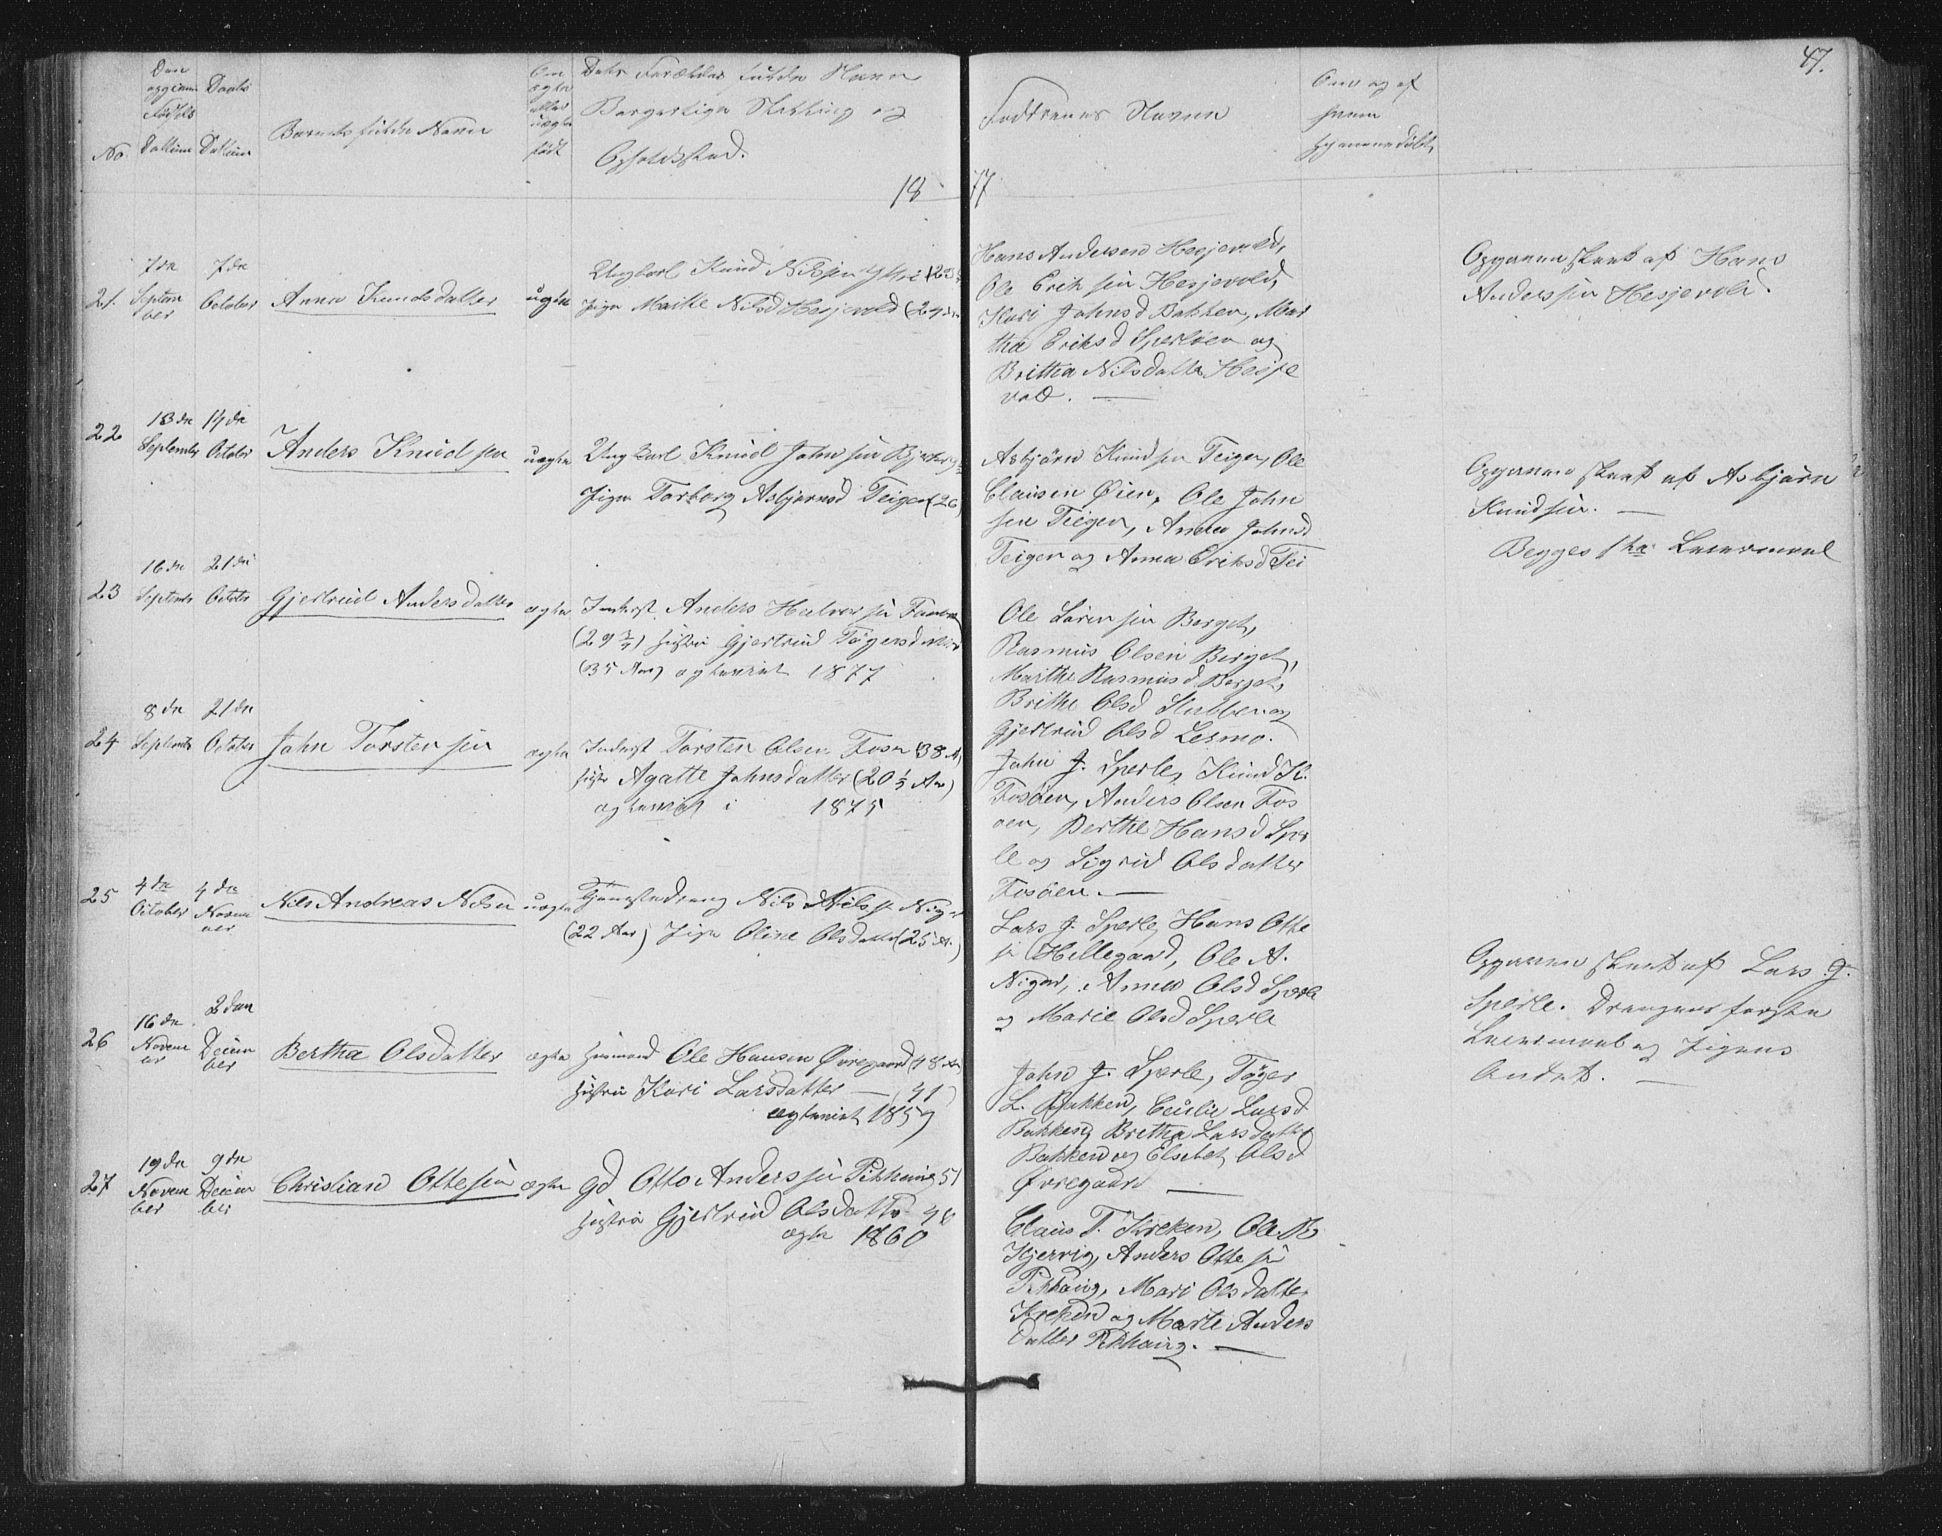 47.
No
Den
opgivne
Fødsels
Datum
Daabs
Datum
Barnets fulde Navn
Om
ægte
eller
uægte
født
Dets Forældres fulde Navn
Borgerlige Stilling og
Opholdssted.
Faddernes Navne
Om og af
hvem
hjemmedøbt
18 77
21.
7de
Septem
ber
7de
October
Anna Knudsdatter
uægte
Ungkarl Knud Nilsen
Pige Marthe Nilsd Hesjevold
Hans Andersen Hesjevold,
Ole Eriksen Hesjevold,
Kari Johnsd Bakken, Mar
tha Eriksd Sperløen og
Britha Nilsdatter Hesje
vold.
Opgivende skeet af Hans
Anderssen Hesjevold.
22
13de
September
14de
October
Anders Knudsen
uægte
Ungkarl Knud Johnsen
Pige Torborg Asbjørnsd Teigen (26)
Asbjørn Knudsen Teigen, Ole
Clausen Øien, Ole John
sen Teigen, Anne Johnsd
Teigen og Anna Eriksd Tei
Opgivende skeet af Asbjørn
Knudsen.
Begges 1ste Leiermaal
23
16de
Septembr
21de
October
Gjertrud Andersdatter
ægte
Inderst Anders Halvorsen
(29 ) Hustru Gjertrud Tøgersdatter
(35 Aar) ægteviet 1877
Ole Larsen Berget,
Rasmus Olsen Berget,
Marthe Rasmusd Berget,
Brithe Olsd Stubben og
Gjertrud Olsd Lesmo.
24
8de
Septembr
21de
October
John Torstensen
ægte
Inderst Torsten Olsen Fosn (38 A
Hustr Agatte Johnsdatter (20 1/2 Aar)
ægteviet i 1875
John J. Sperle, Knud K.
Fosøen, Anders Olsen Fos
øen, Berthe Hansd Sper
le og Sigrid Olsdatter
Fosøen.
25
4de
October
4de
Novem
ber
Nils Andreas Nilsen
uægte
Tjenestedreng Nils Nilss
(22 Aar) Pige Oline Olsdatter (25 A.)
Lars J. Sperle, Hans Otte
sn Hillegaard, Ole A.
Nigar, Anne Olsd Sperle
og Marie Olsd Sperle
Opgivende skeet af Lars J.
Sperle. Drengens første
Leiermaal og Pigens
Andet.
26
16de
Novem
ber
2den
Decem
ber
Bertha Olsdatter
ægte
Husmand Ole Hansen Øvregaard (48 Aar
Hustru Kari Larsdatter (41)
ægteviet 1857
John J. Sperle, Tøger
L. Bakken, Cecilie Larsd
Bakken, Britha Larsdatter
Bakken og Elsebet Olsd
Øvregaard
27
19de
Novem
ber
9de
Decem
ber
Christian Ottesen
ægte
Gd Otto Anderssen Pikhaug 51
Hustru Gjertrud Olsdatter
ægte 1860
Claus T. Kreken, Ole R
Kjervig, Anders Ottesen
Pikhaug, Mari Olsdatter
Kreken og Marte Anders
datter Pikhaug.